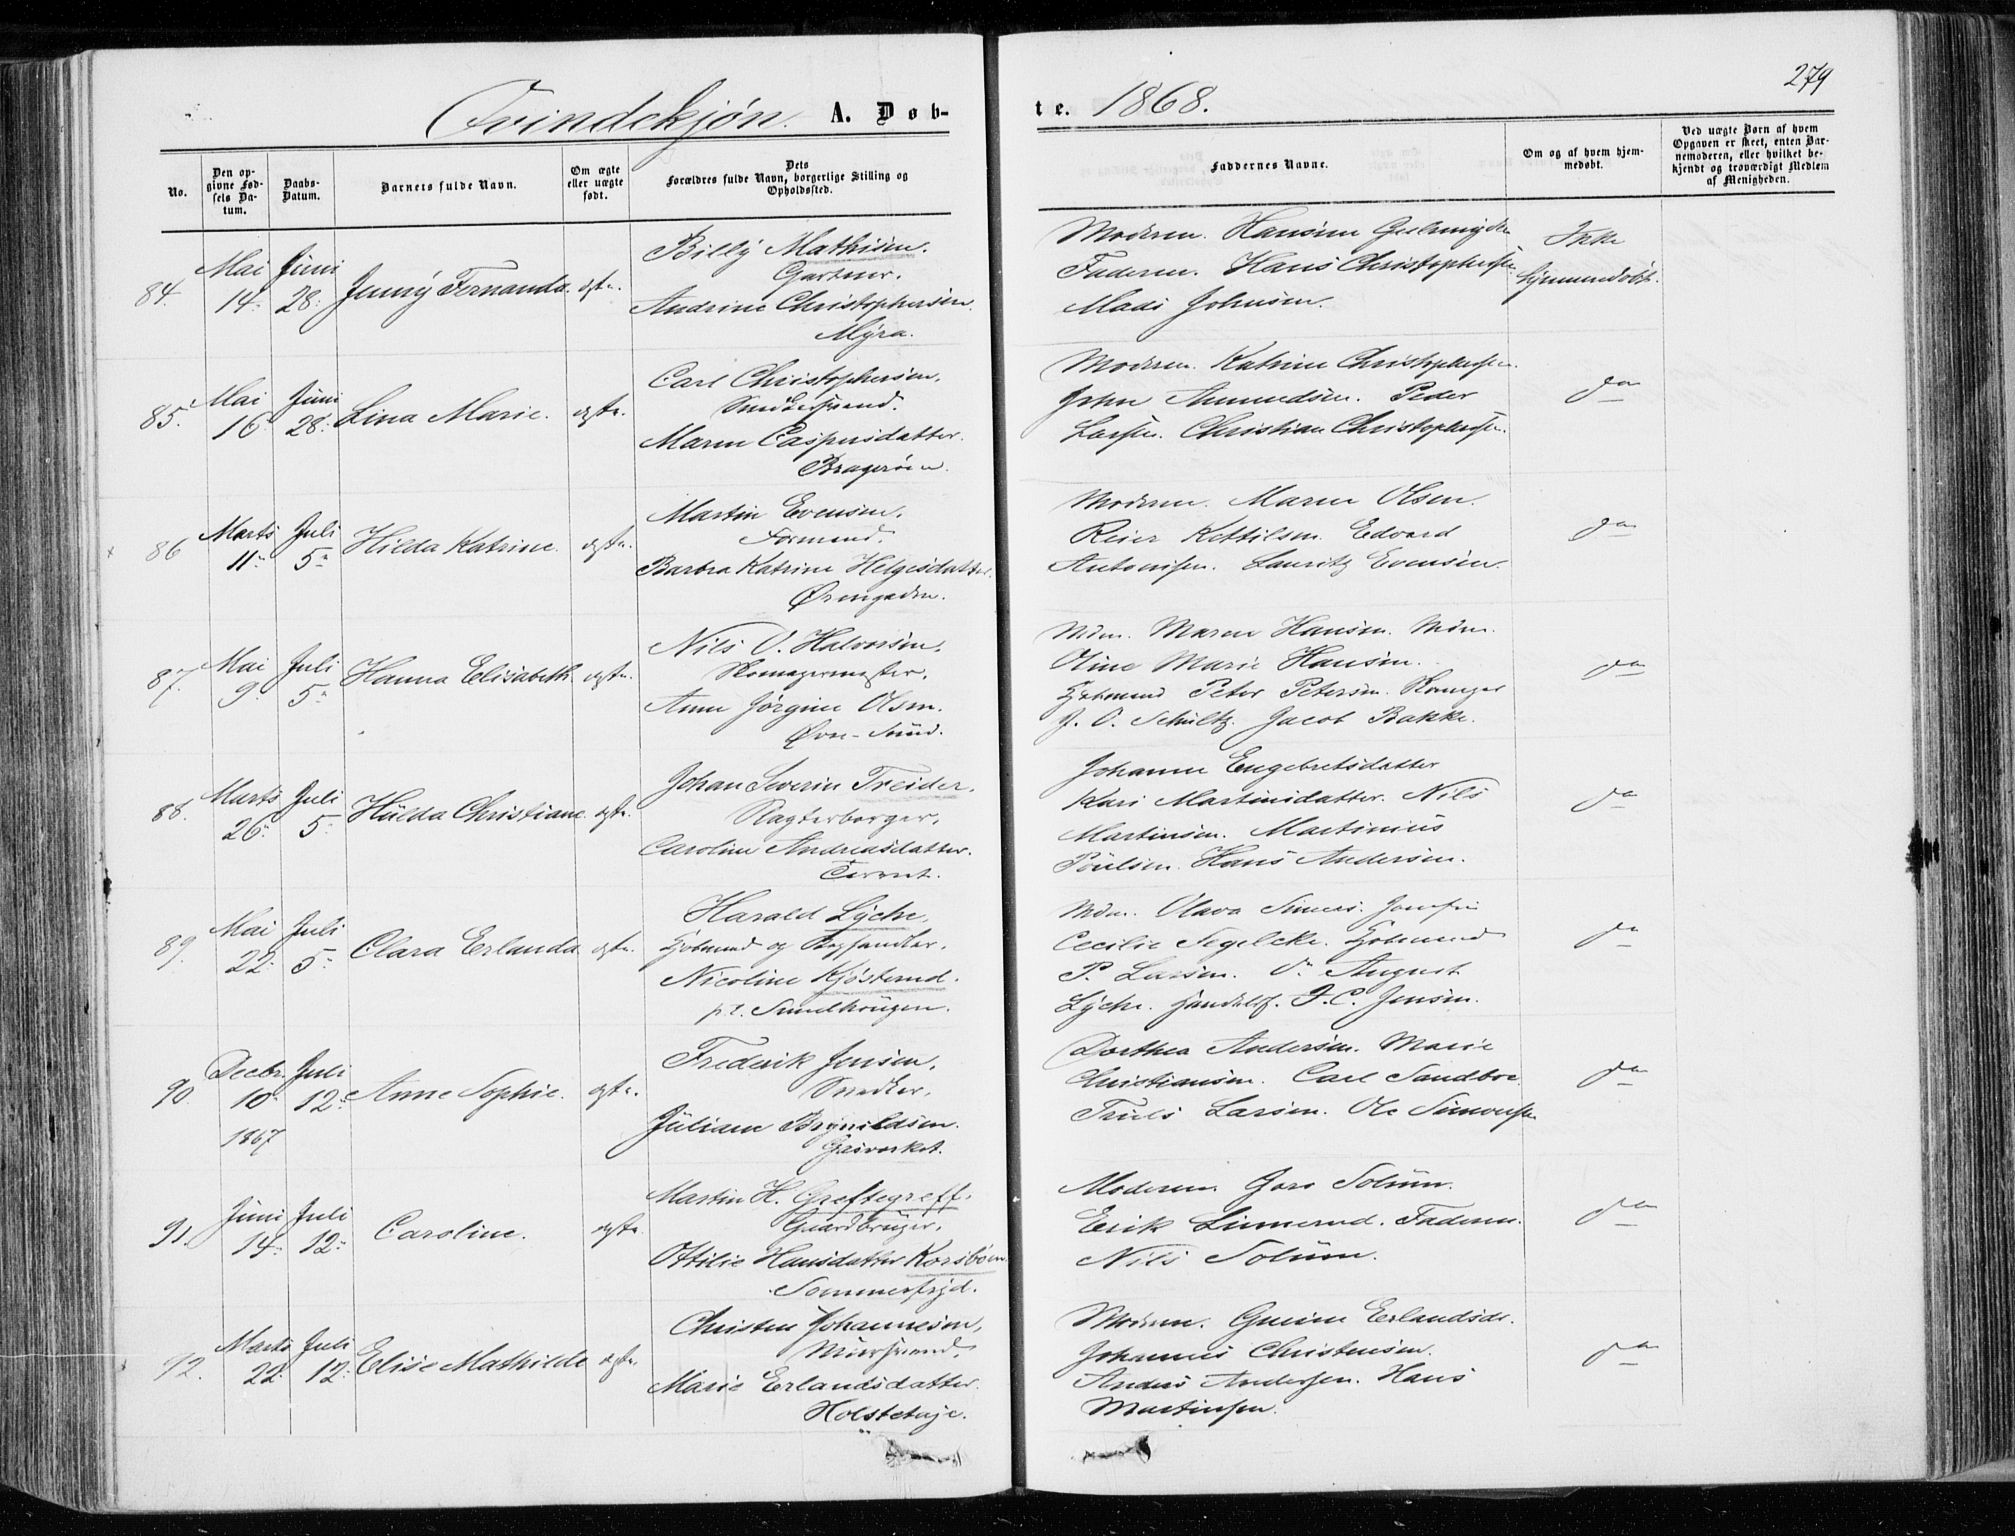 279
Qvindekjøn. A. Døb-
te. 1868.
No.
Den op-
givne Fød-
sels Da-
tum.
Daabs-
Datum.
Barnets fulde Navn.
Om ægte
eller uægte
født.
Dets
Forældres fulde Navn, borgerlige Stilling og
Opholdssted.
Faddernes Navne.
Om og af hvem hjem-
medøbt.
Ved uægte Børn af hvem
Opgaven er skeet, enten Bar-
nemoderen, eller hvilket be-
kjendt og troværdigt Medlem
af Menigheden.
84. Mai 14. Juni 28. Jenny Fernanda. ægte.
Billy Mathisen.
Gartner.
Andrine Christophersen.
Myra.
Moderen. Hansine
Faderen. Hans Christophersen
Mads Johnsen.
Ikke
hjemmedøbt.
85. Mai 16. Juni 28. Lina Marie. ægte.
Carl Christophersen.
Smedesvend.
Maren Caspersdatter.
Bragerøen.
Moderen. Katrine Christophersen.
John Amundsen. Peder
Larsen. Christian Christophersen.
do
86 Marts 11. Juli 5. Hilda Katrine. ægte.
Martin Evensen.
Formand.
Barbra Katrine Helgesdatter.
Ørengaden.
Moderen. Maren Olsen.
Reier Kettilsen. Edvard
Antonisen. Lauritz Evensen.
do
87. Mai 9. Juli 5. Hanna Elisabeth. ægte.
Nils O. Halvorsen.
Skomagermester.
Anne Jørgine Olsen.
Øvre-Sund.
Mdm. Maren Hansen. Mdm.
Oline Marie Hansen.
Kjøbmand Peter Petersen. Skomager
J. O. Schultz. Jacob Bakke.
do
88. Marts 26. Juli 5. Hulda Christiane. ægte.
Johan Severin Treider.
Slagterborger.
Caroline Andreasdatter.
Johanne Engebretsdatter
Kari Martinsdatter. Nils
Martinsen. Martinius
Poulsen. Hans Andersen.
do
89. Mai 22. Juli 5. Clara Erlanda. ægte.
Harald Lyche,
Kjøbmand og Boghandler.
Nicoline Kjøsterud.
p. t. Smedkrogen.
Mdm. Olava Simers. Jomfru
Cecilie Segelcke. Kjøbmænd
P. Larsen. do August
Lyche. Handelsf. J. C. Jensen.
do
90. Decbr. 10. 1867 Juli 12. Anne Sophie. ægte.
Frederik Jensen.
Snedker.
Juliane Brynildsen.
Gasverket.
Dorthea Andersen. Marie
Christiansen. Carl Sandboe
Truls Larsen. Ole Simonsen
do
91. Juni 14. Juli 12. Caroline. ægte
Martin H. Greftegreff.
Gaardbruger.
Ottilie Hansdatter Korsbøen.
Sommerfryd.
Moderen. Goro Solum.
Erik Linnerud. Faderen.
Nils Solum.
do
92. Marts 22. Juli 12. Elise Mathilde ægte
Christen Johannesen.
Muursvend.
Marie Erlandsdatter.
Holstehaje.
Moderen. Gurine Erlandsdr.
Johannes Christensen.
Anders Andersen. Hans
Martinsen.
do